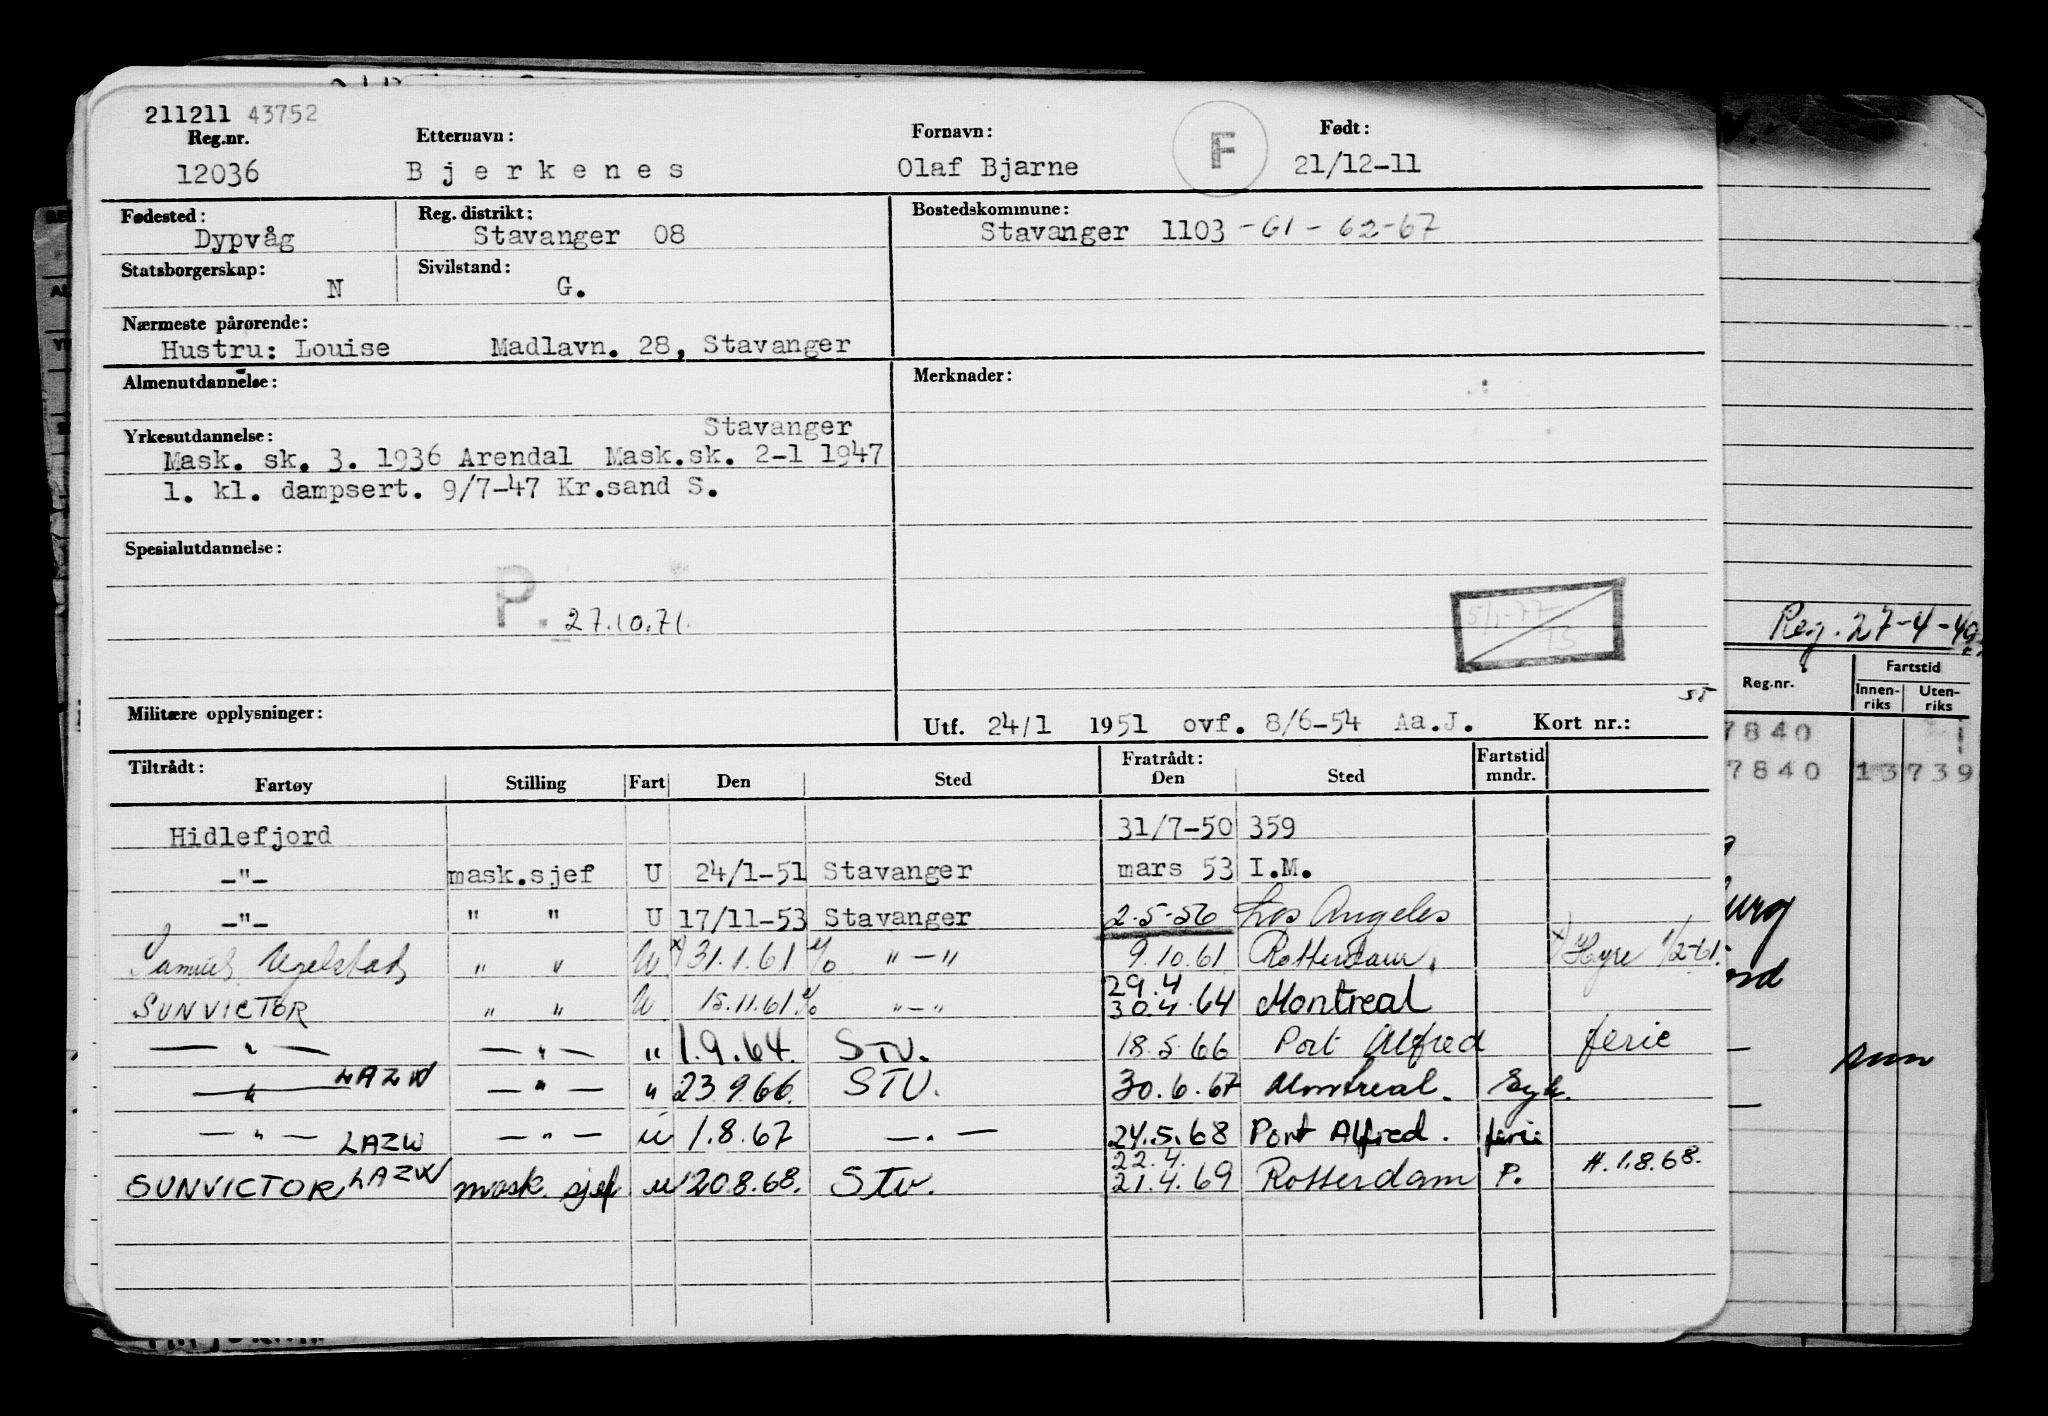 211211 43752
Reg.nr. Etternavn: Fornavn: F Født:
12036 Bjerkenes Olaf Bjarne 21/12-11
Fødested: Reg. distrikt: Bostedskommune:
Dypvåg Stavanger 08 Stavanger 1103 - 61 - 62 - 67
Statsborgerskap: Sivilstand:
N G.
Nærmeste pårørende:
Hustru: Louise Madlavn. 28, Stavanger
Almenutdannelse: Merknader:
Stavanger
Yrkesutdannelse:
Mask. sk. 3. 1936 Arendal Mask.sk. 2-1 1947
1. kl. dampsert. 9/7-47 Kr.sand S.
Spesialutdannelse:
P. 27.10.71.
5/1-77
Reg. 27-4-49
Militære opplysninger: Utf. 24/1 1951 ovf. 8/6-54 Aa.J. Kort nr.:
Tiltrådt: Fratrådt: Fartstid
Fartøy Stilling Fart Den Sted Den Sted mndr.
Hidlefjord 31/7-50 359
-"- mask.sjef U 24/1-51 Stavanger mars 53 I.M.
-"- " " U 17/11-53 Stavanger 2-5-56 Los Angeles
Samuel Ugelstad " " U x) 31.1.61 %  " - " 9.10.61 Rotterdam. x) Hyre 1/2-61.
SUNVICTOR " " U 15.11.61 % " - " 29.4 30.4.64 Montreal
— " — — " — " 1.9.64. STV. 18.5.66 Port Alfred ferie
— " — LAZW — " — " 23.9.66. STV. 30.6.67 Montreal. Syk.
— " — LAZW — " — u 1.8.67 — " — 24.5.68 Port Alfred. ferie
SUNVICTOR LAZW mask. sjef u 20.8.68. Stv. 22.4. 21.4.69 Rotterdam P. H. 1.8.68.
Reg.nr. Fartstid
Innen-riks Uten-riks
7840 1
7840 13 739